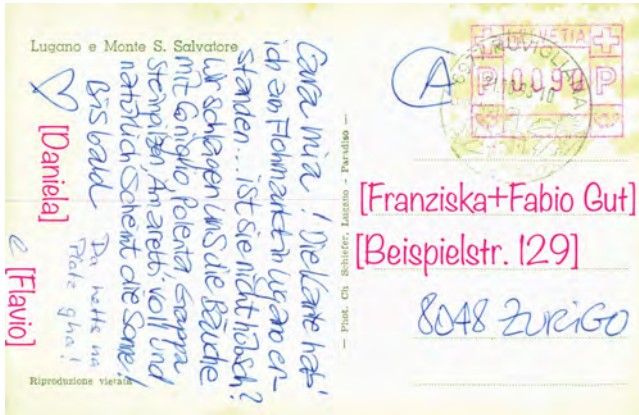 Lugano e Monte S. Salvatore
Cara mia! Die Karte hab'
ich am Flohmarkt in Lugano er-
standen... ist sie nicht hübsch?
Wir schlagen uns die Bäuche
mit Coniglio, Polenta, Grappa
Steinpilzen, Amaretti, voll und
natürlich scheint die Sonne!
Bis bald
♡ [Daniela] e [Flavio]
Da hette na
Platz gha!
Riproduzione vietata
— Phot. Ch. Schiefer, Lugano - Paradiso —
A
HELVETIA
P 0090 P
RUVIGLIANA
[Franziska+Fabio Gut]
[Beispielstr. 129]
8048 ZURIGO